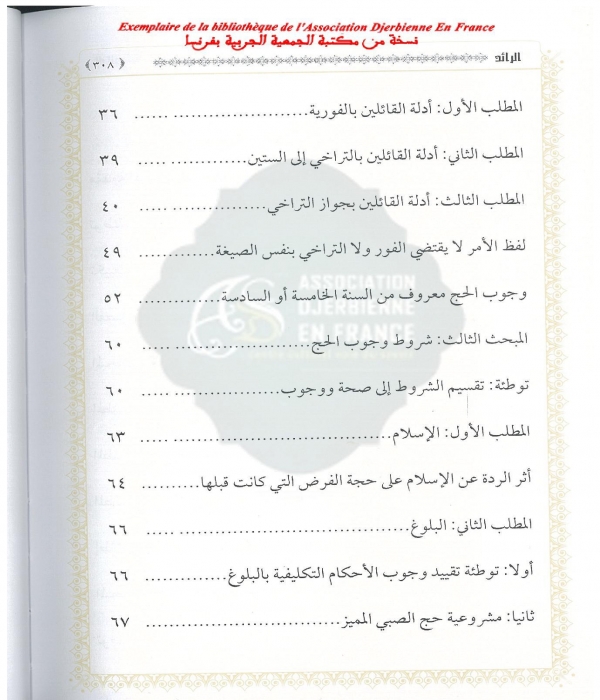 Exemplaire de la bibliothèque de l'Association Djerbienne En France
نسخة من مكتبة الجمعية الجربية بفرنسا
الرائد ﴿٣٠٨﴾
المطلب الأول: أدلة القائلين بالفورية........................ ...... ٣٦
المطلب الثاني: أدلة القائلين بالتراخي إلى الستين............ ..... ٣٩
المطلب الثالث: أدلة القائلين بجواز التراخي................. ..... ٤٠
لفظ الأمر لا يقتضي الفور ولا التراخي بنفس الصيغة............. ٤٩
وجوب الحج معروف من السنة الخامسة أو السادسة.............. ٥٢
المبحث الثالث: شروط وجوب الحج...................... ..... ٦٠
توطئة: تقسيم الشروط إلى صحة ووجوب................. ..... ٦٠
المطلب الأول: الإسلام................................ ..... ٦٣
أثر الردة عن الإسلام على حجة الفرض التي كانت قبلها.......... ٦٤
المطلب الثاني: البلوغ.............................. ..... ٦٦
أولا: توطئة تقييد وجوب الأحكام التكليفية بالبلوغ............. ٦٦
ثانيا: مشروعية حج الصبي المميز................................ ٦٧
ASSOCIATION
DJERBIENNE
EN FRANCE